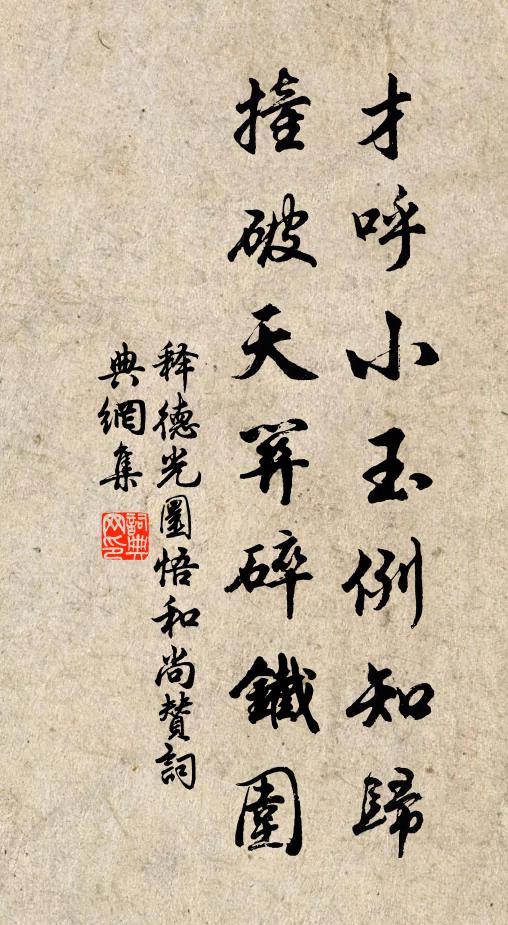 才呼小玉例知歸
撞破天笄碎鐵圍
释德光圜悟和尚贊詞
典網集
詞典
网印